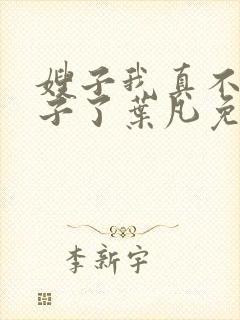 嫂子我真不
子了叶凡免
李新宇